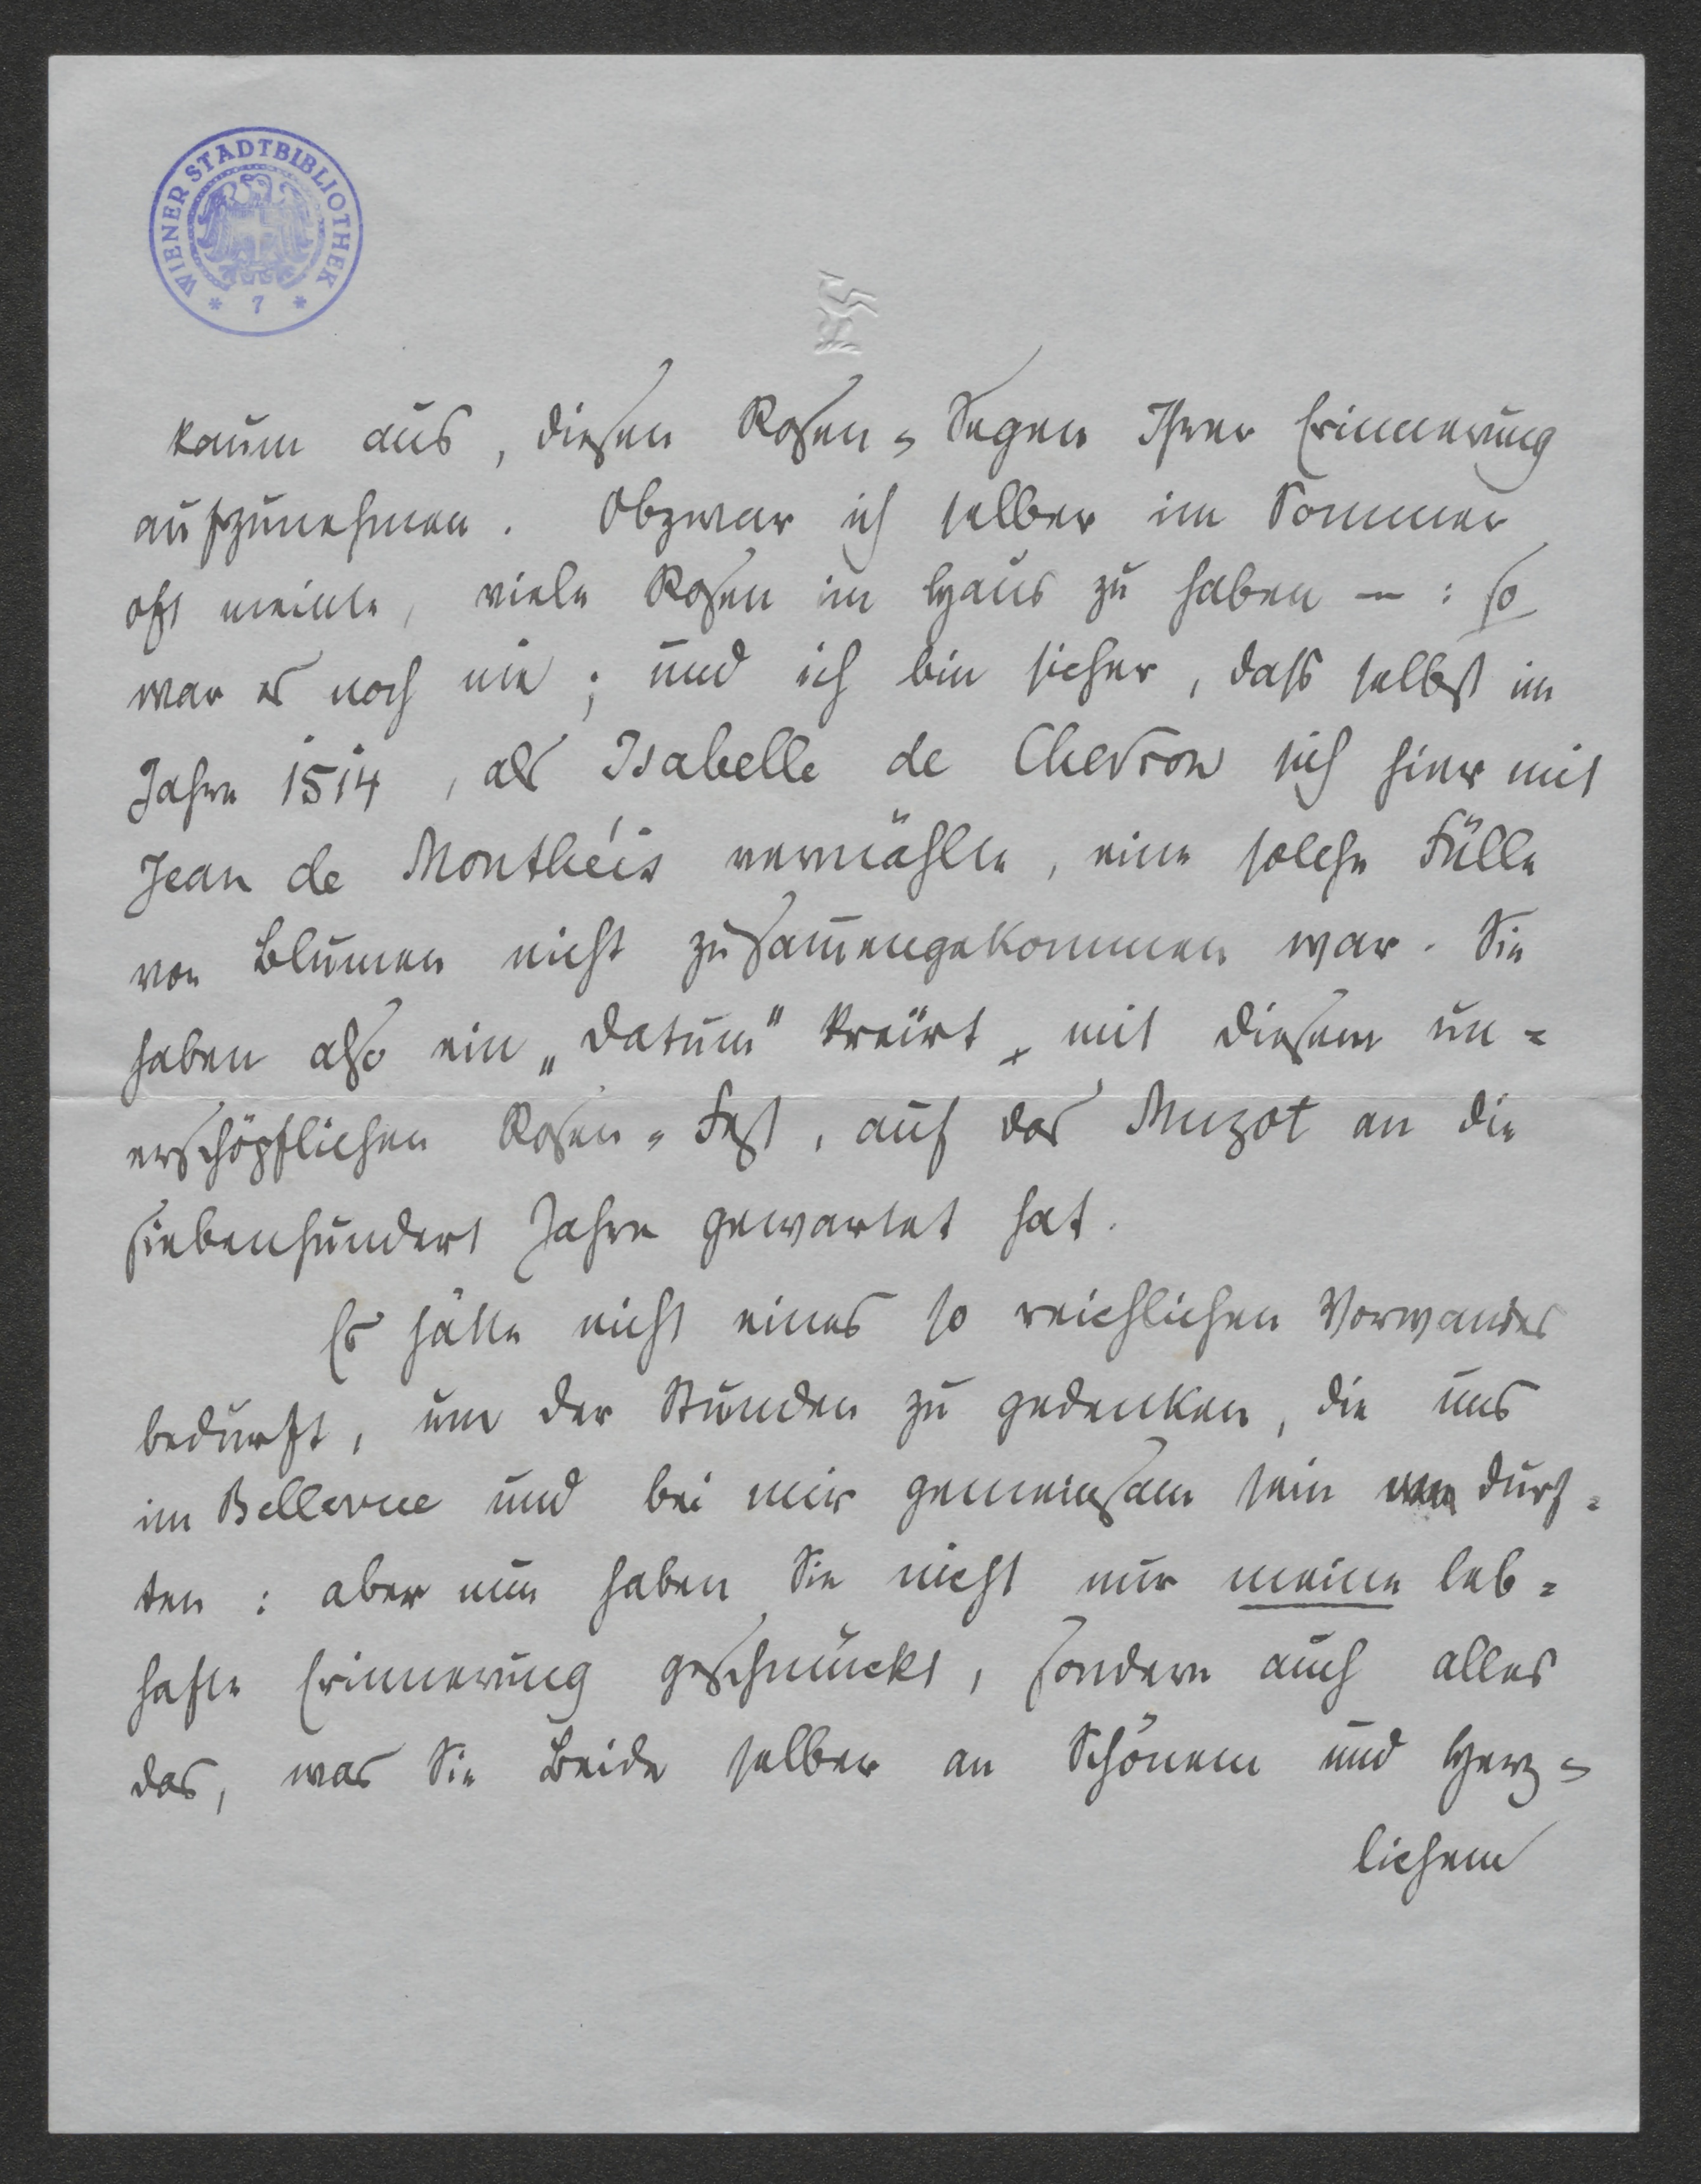 WIENER STADTBIBLIOTHEK
* 7 *
kaum aus, diesen Rosen-Segen Ihrer Erinnerung
aufzunehmen. Obzwar ich selber im Sommer
oft meinte, viele Rosen im Haus zu haben — : so
war es noch nie ; und ich bin sicher, dass selbst im
Jahre 1514, als Isabelle de Chevron sich hier mit
Jean de Monthéis vermählte, eine solche Fülle
von Blumen nicht zusam̅engekommen war. Sie
haben also ein „Datum" kreïrt, mit diesem un=
erschöpflichen Rosen-Fest, auf das Muzot an die
siebenhundert Jahre gewartet hat.
Es hätte nicht eines so reichlichen Vorwandes
bedurft, um der Stunden zu gedenken, die uns
im Bellevue und bei mir gemeinsam sein durf=
ten : aber nun haben Sie nicht nur meine leb=
hafte Erinnerung geschmückt, sondern auch alles
das, was Sie Beide selber an Schönem und Herz=
lichem